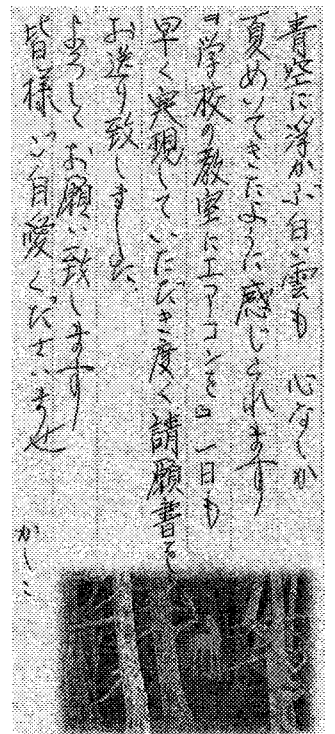 青空に浮かぶ白い雲も 心なしか
夏めいてきたように感じられます
『学校の教室にエアーコンを』一日も
早く実現していただき度く請願書を
お送り致しました
よろしくお願い致します
皆様ご自愛くださいませ
かしこ